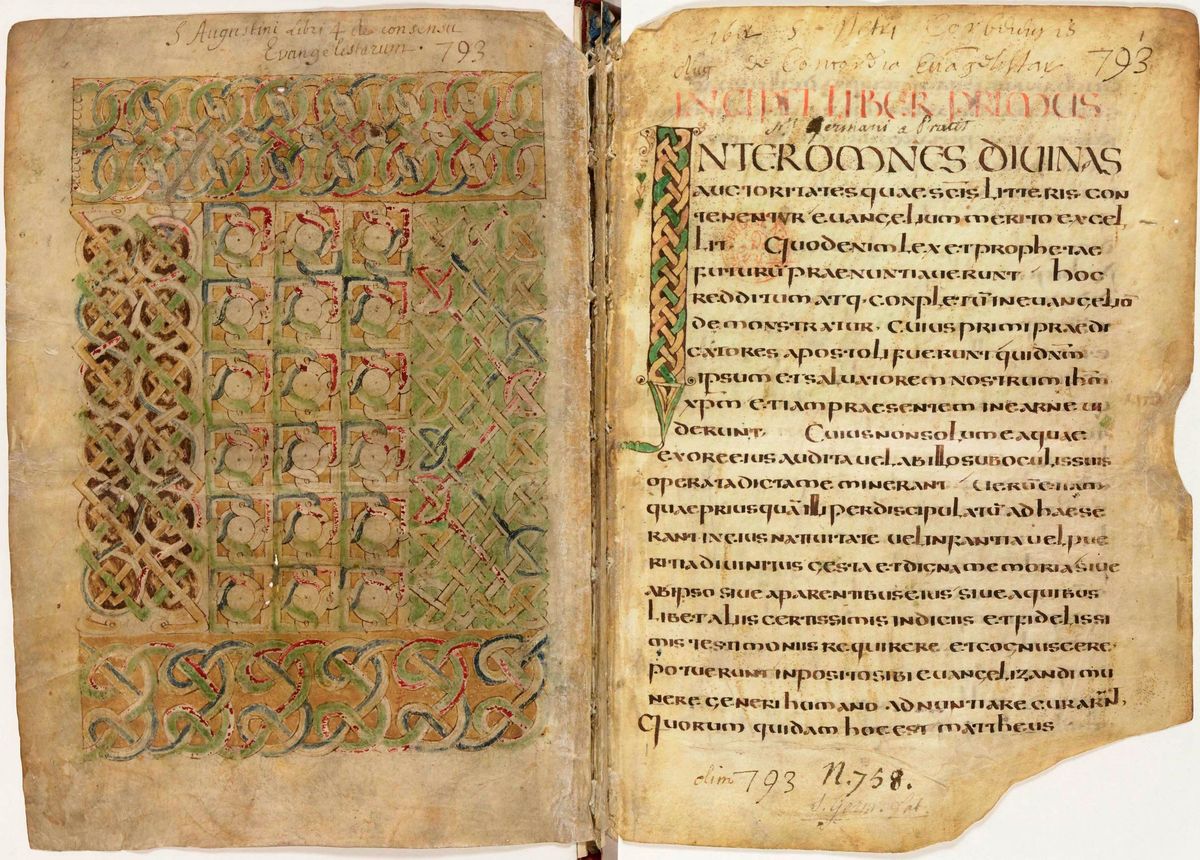 S Augustini Libri 4 de consensu
Evangelistarum. 793
S Petri Corbeiensis
Aug de Concordia Evãgelistar 793
INCIPIT LIBER PRIMUS
Sti Germani a Pratis
INTER OMNES DIVINAS
auctoritates quae scis litteris con
tenentur euangelium merito excel
lit · Quod enim lex et prophetae
futurū praenuntiauerunt hoc
redditum atq· conpletū in euangelio
demonstratur · cuius primi praedi
catores apostoli fuerunt qui dn̄m
ipsum et saluatorem nostrum ih̄m
xp̄m etiam praesentem in carne ui
derunt · Cuius non solum ea quae
ex ore eius audita uel ab illo sub oculis suis
operata dicta meminerant Uerū etiam
quae prius quā illi per discipulatū adhaese
rant in eius natiuitate uel infantia uel pue
ritia diuinitus gesta et digna memoria siue
ab ipso siue a parentibus eius siue a quibus
libet aliis certissimis indiciis et fidelissi
mis testimoniis requirere et cognuscere
potuerunt inposito sibi euangelizandi mu
nere generi humano adnuntiare curarn̄,
Quorum quidam hoc est mattheus
olim 793 N. 758.
S. Germ. lat.